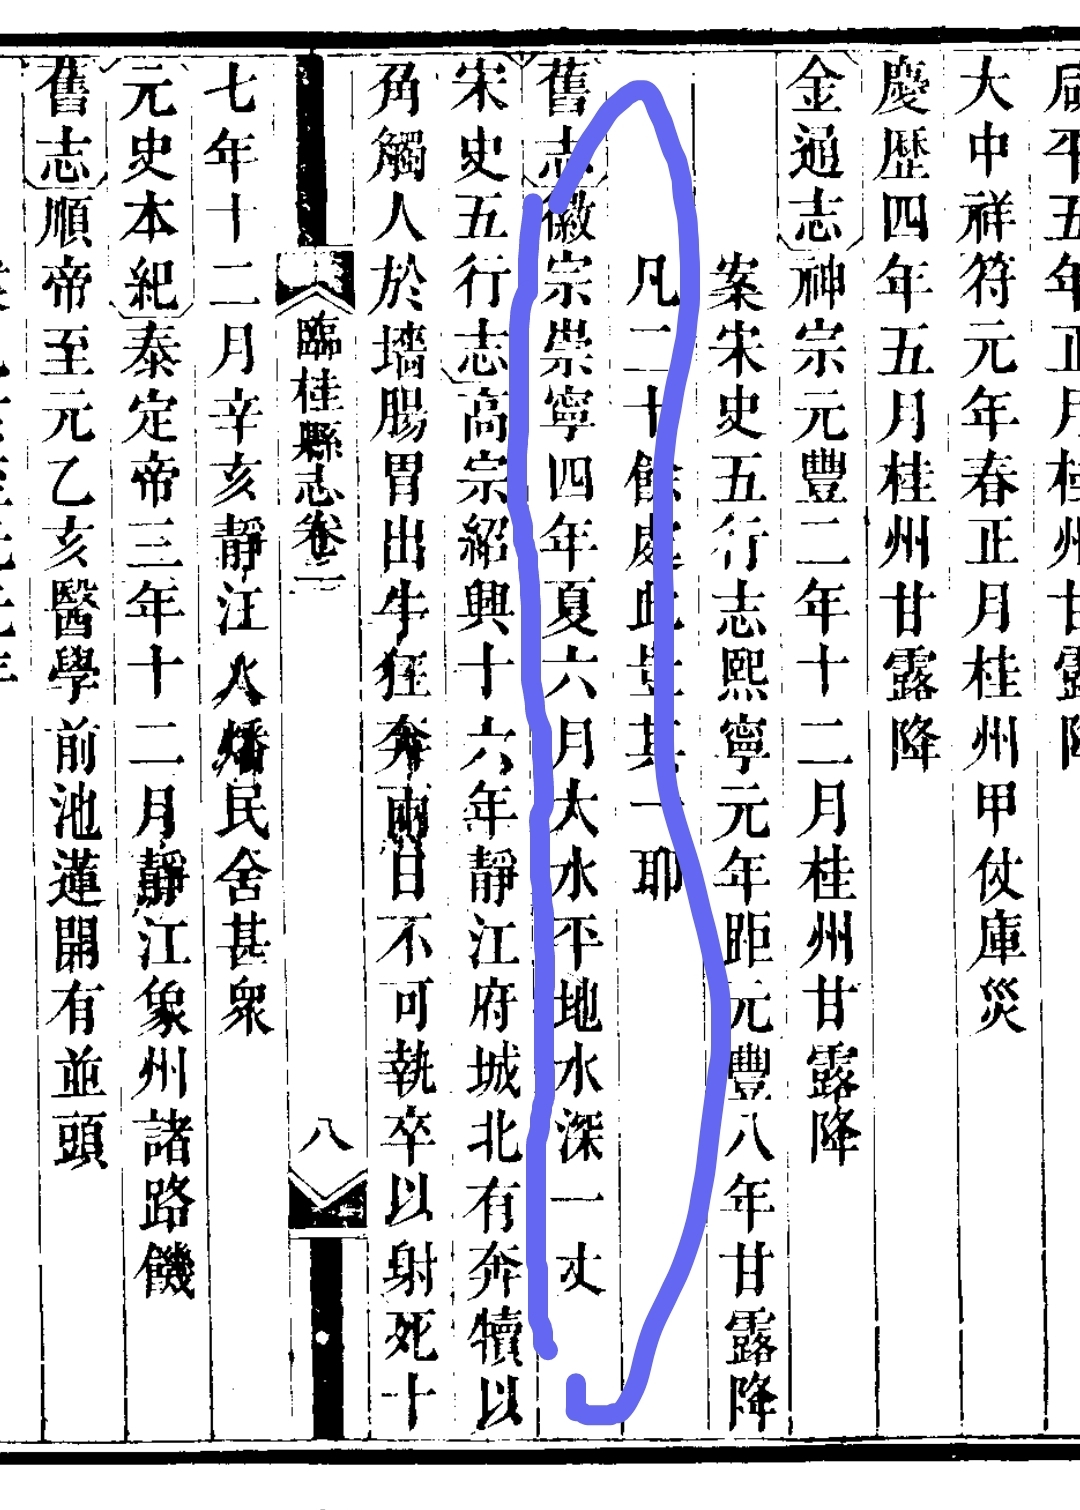 咸平五年正月桂州甘露降
大中祥符元年春正月桂州甲仗庫災
慶歷四年五月桂州甘露降
金通志神宗元豐二年十二月桂州甘露降
案宋史五行志熙寧元年距元豐八年甘露降
凡二十餘處此豈其一耶
舊志徽宗崇寧四年夏六月大水平地水深一丈
宋史五行志高宗紹興十六年靜江府城北有奔犢以
角觸人於墻腸胃出牛狂奔兩日不可執卒以射死十
臨桂縣志卷二
八
七年十二月辛亥靜江火燔民舍甚衆
元史本紀泰定帝三年十二月靜江象州諸路饑
舊志順帝至元乙亥醫學前池蓮開有並頭